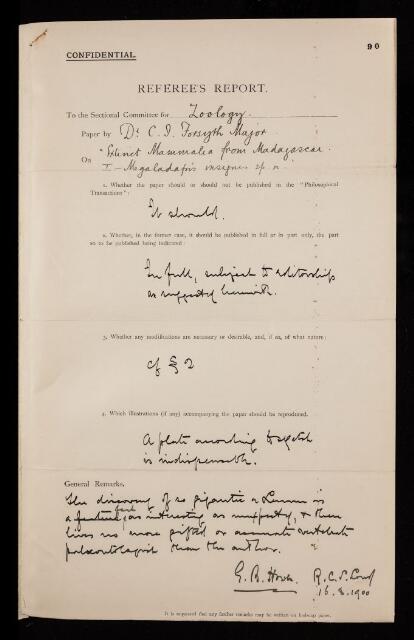 90
CONFIDENTIAL.
REFEREE'S REPORT.
To the Sectional Committee for Zoology.
Paper by Dr C. I. Forsyth Major
On "Extinct Mammalia from Madagascar.
I – Megaladapis insignis sp n.
1. Whether the paper should or should not be published in the "Philosophical
Transactions":
It should.
2. Whether, in the former case, it should be published in full or in part only, the part
so to be published being indicated:
In full, subject to
as suggested herewith.
3. Whether any modifications are necessary or desirable, and, if so, of what nature:
cf § 2
4. Which illustrations (if any) accompanying the paper should be reproduced.
A plate according to sketch
is indispensable.
General Remarks.
The discovery of so gigantic a Lemur is
a fact as interesting as unexpected, & there
lives no more gifted or accurate vertebrate
palaeontologist than the author.
G. B. Howes. R. C. S. Lond
16. 3. 1900
It is requested that any further remarks may be written on foolscap paper.